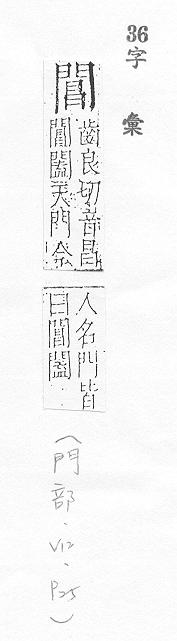 36字 彙
閶
齒良切音昌
閶闔天門今
人名門皆
曰閶闔
(門部.V12.P25)